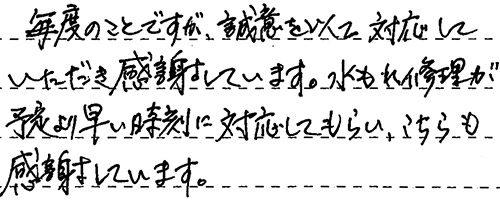 毎度のことですが、誠意を以て対応して
いただき感謝しています。水もれ修理が
予定より早い時刻に対応してもらい、こちらも
感謝しています。